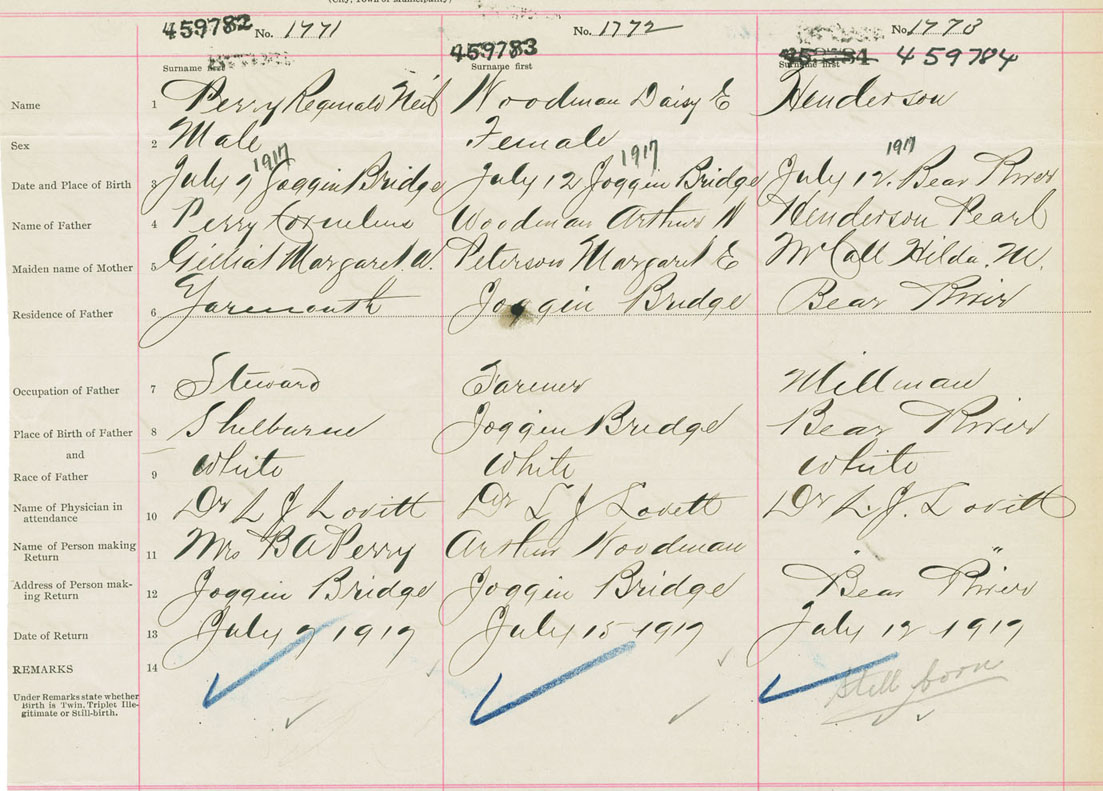 (City, Town or Municipality)
459782 No. 1771
459783 No. 1772
No. 1773 459784
Surname first Surname first Surname first
Name 1 Perry Reginald Neil Woodman Daisy E Henderson
Sex 2 Male Female
1917 1917 1917
Date and Place of Birth 3 July 7 Joggin Bridge July 12 Joggin Bridge July 12. Bear River
Name of Father 4 Perry Cornelius Woodman Arthur W Henderson Pearl
Maiden name of Mother 5 Gilliat Margaret W. Peterson Margaret E McCall Hilda. M.
Residence of Father 6 Yarmouth Joggin Bridge Bear River
Occupation of Father 7 Steward Farmer Millman
Place of Birth of Father 8 Shelburne Joggin Bridge Bear River
and
Race of Father 9 White White White
Name of Physician in attendance 10 Dr L J Lovitt Dr L J Lovett Dr L. J. Lovitt
Name of Person making Return 11 Mrs B A Perry Arthur Woodman " "
Address of Person making Return 12 Joggin Bridge Joggin Bridge Bear River
Date of Return 13 July 9 1917 July 15 1917 July 12 1917
REMARKS 14
Still born
Under Remarks state whether
Birth is Twin, Triplet Ille-
gitimate or Still-birth.